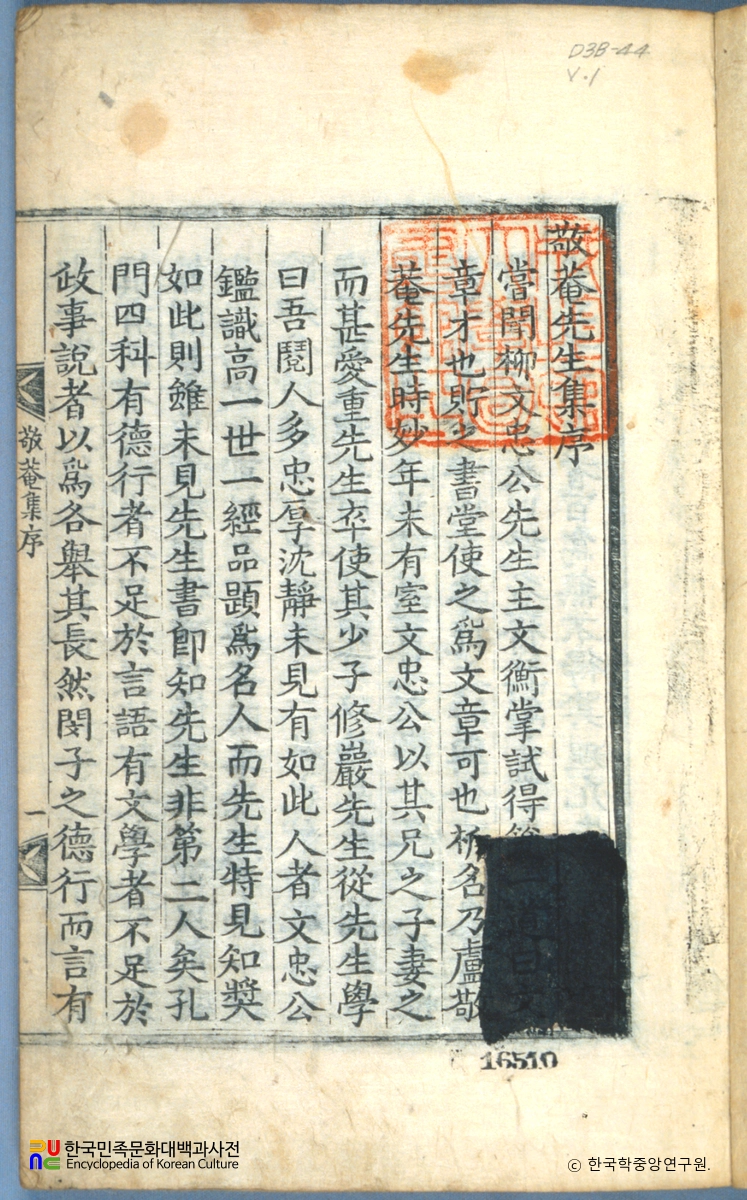 D3B-44
v.1
敬菴先生集序
嘗聞柳文忠公先生主文衡掌試得
章才也貯之書堂使之爲文章可也柝名乃盧敬
菴先生時妙年未有室文忠公以其兄之子妻之
而甚愛重先生卒使其少子修巖先生從先生學
曰吾閱人多忠厚沈靜未見有如此人者文忠公
鑑識高一世一經品題爲名人而先生特見知奬
如此則雖未見先生書卽知先生非第二人矣孔
門四科有德行者不足於言語有文學者不足於
政事說者以爲各舉其長然閔子之德行而言有
敬菴集序
一
16510
한국민족문화대백과사전
Encyclopedia of Korean Culture
© 한국학중앙연구원.